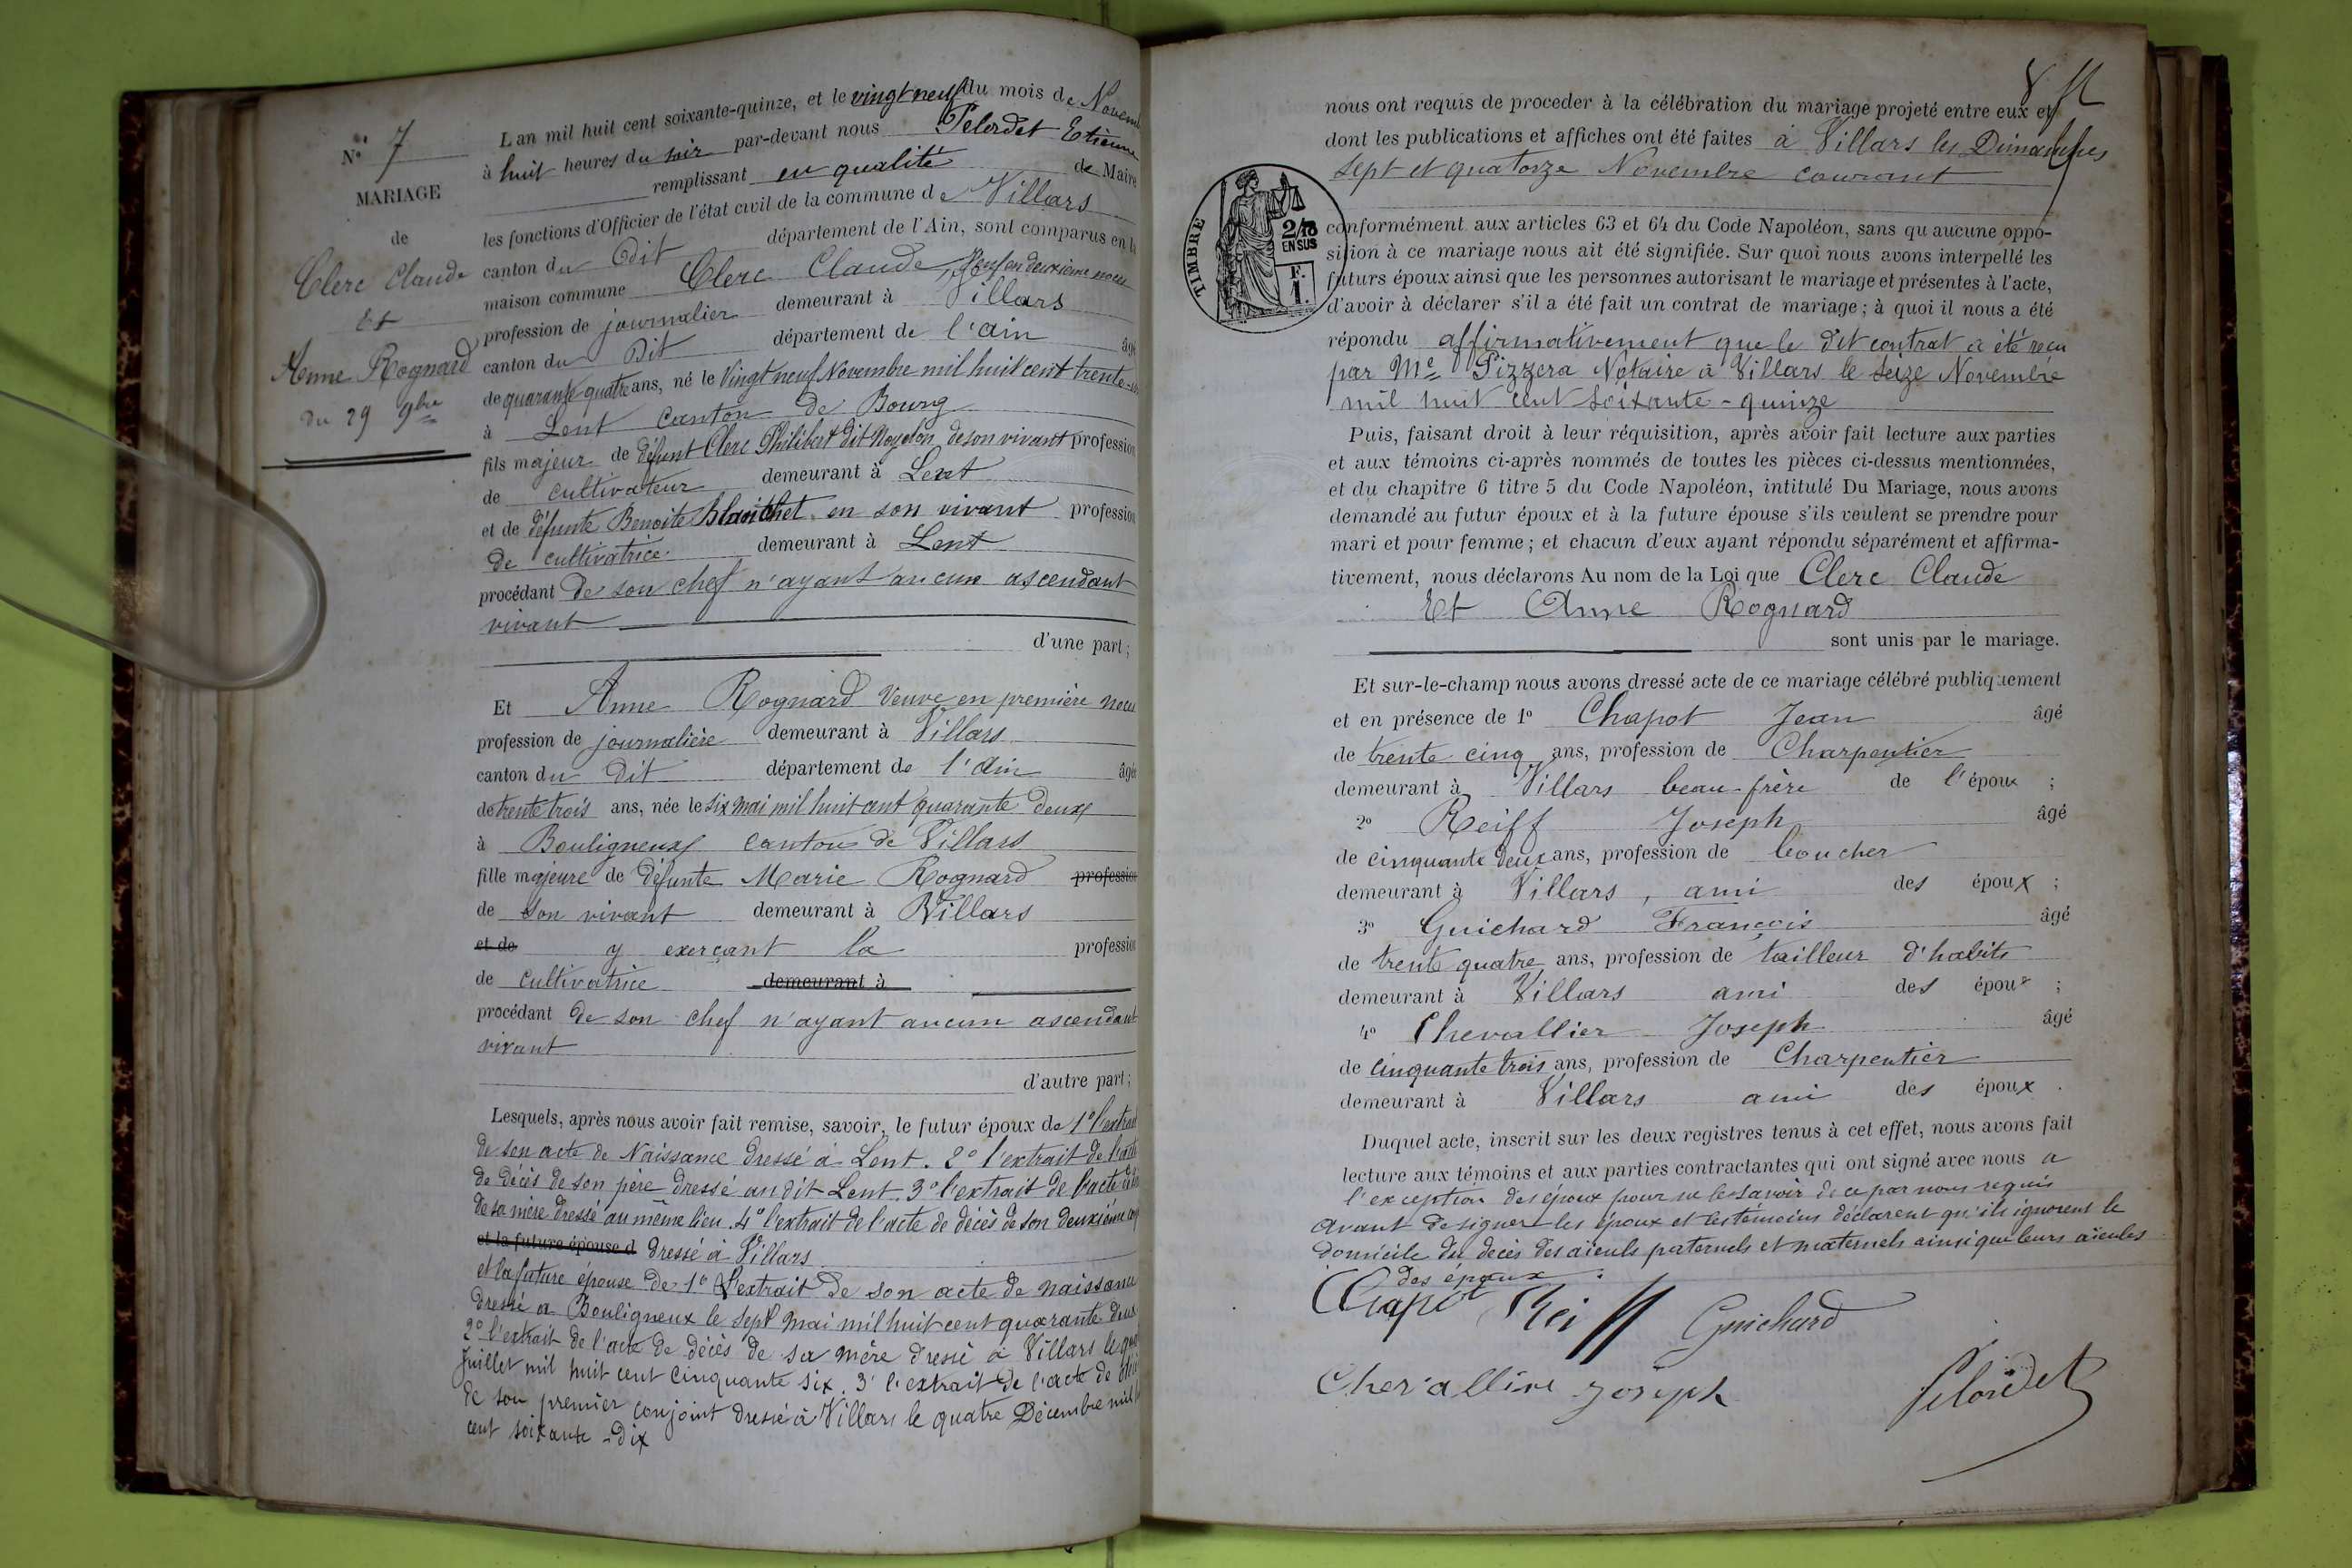 N° 7
MARIAGE
de
Clerc Claude
Et
Anne Rognard
du 29 9bre
L'an mil huit cent soixante-quinze, et le vingt neuf du mois de Novem
à huit heures du soir par-devant nous Pelordet Etienne
remplissant en qualité de Maire
les fonctions d'Officier de l'état civil de la commune de Villars
canton du Dit département de l'Ain, sont comparus en la
maison commune Clerc Claude, Veuf en deuxième noces
profession de journalier demeurant à Villars
canton du Dit département de l'ain âgé
de quarante quatre ans, né le Vingt neuf Novembre mil huit cent trente-un
à Lent canton de Bourg
fils majeur de défunt Clerc Philibert dit Noyelon de son vivant profession
de cultivateur demeurant à Lent
et de défunte Benoite Blanchet en son vivant profession
de cultivatrice demeurant à Lent
procédant de son chef n'ayant aucun ascendant
vivant
d'une part;
Et Anne Rognard Veuve en première noces
profession de journalière demeurant à Villars
canton du Dit département de l'Ain âgée
de trente trois ans, née le six mai mil huit cent quarante deux
à Bouligneux canton de Villars
fille majeure de défunte Marie Rognard profession
de son vivant demeurant à Villars
et de y exerçant la profession
de cultivatrice demeurant à
procédant de son chef n'ayant aucun ascendant
vivant
d'autre part;
Lesquels, après nous avoir fait remise, savoir, le futur époux de 1° l'extrait
de son acte de Naissance dressé à Lent. 2° l'extrait de l'acte
de décès de son père dressé au dit Lent. 3° l'extrait de l'acte de
de sa mère dressé au même lieu. 4° l'extrait de l'acte de décès de son deuxième
et la future épouse d dressé à Villars
et la future épouse de 1° L'extrait de son acte de naissance
dressé à Bouligneux le sept mai mil huit cent quarante deux
2° l'extrait de l'acte de décès de sa mère dressé à Villars le
Juillet mil huit cent cinquante six. 3° l'extrait de l'acte de
de son premier conjoint dressé à Villars le quatre Décembre mil
cent soixante-dix
nous ont requis de proceder à la célébration du mariage projeté entre eux et
dont les publications et affiches ont été faites à Villars les Dimanches
sept et quatorze Novembre courant
TIMBRE
2/10
EN SUS
F.
1.
conformément aux articles 63 et 64 du Code Napoléon, sans qu'aucune oppo-
sition à ce mariage nous ait été signifiée. Sur quoi nous avons interpellé les
futurs époux ainsi que les personnes autorisant le mariage et présentes à l'acte,
d'avoir à déclarer s'il a été fait un contrat de mariage; à quoi il nous a été
répondu affirmativement que le dit contrat a été reçu
par Me Pizzera Notaire à Villars le seize Novembre
mil huit cent soixante-quinze
Puis, faisant droit à leur réquisition, après avoir fait lecture aux parties
et aux témoins ci-après nommés de toutes les pièces ci-dessus mentionnées,
et du chapitre 6 titre 5 du Code Napoléon, intitulé Du Mariage, nous avons
demandé au futur époux et à la future épouse s'ils veulent se prendre pour
mari et pour femme; et chacun d'eux ayant répondu séparément et affirma-
tivement, nous déclarons Au nom de la Loi que Clerc Claude
Et Anne Rognard
sont unis par le mariage.
Et sur-le-champ nous avons dressé acte de ce mariage célébré publiquement
et en présence de 1° Chapot Jean âgé
de trente cinq ans, profession de Charpentier
demeurant à Villars beau-frère de l'époux ;
2° Reiff Joseph âgé
de cinquante deux ans, profession de boucher
demeurant à Villars, ami des époux ;
3° Guichard François âgé
de trente quatre ans, profession de tailleur d'habits
demeurant à Villars ami des époux ;
4° Chevallier Joseph âgé
de cinquante trois ans, profession de Charpentier
demeurant à Villars ami des époux .
Duquel acte, inscrit sur les deux registres tenus à cet effet, nous avons fait
lecture aux témoins et aux parties contractantes qui ont signé avec nous a
l'exception des époux pour ne le savoir de ce par nous requis
avant de signer les époux et les témoins déclarent qu'ils ignorent le
domicile du decès des aïeuls paternels et maternels ainsi que leurs aïeules
des époux
Chapot Reiff Guichard
Chevallier Joseph Pelordet